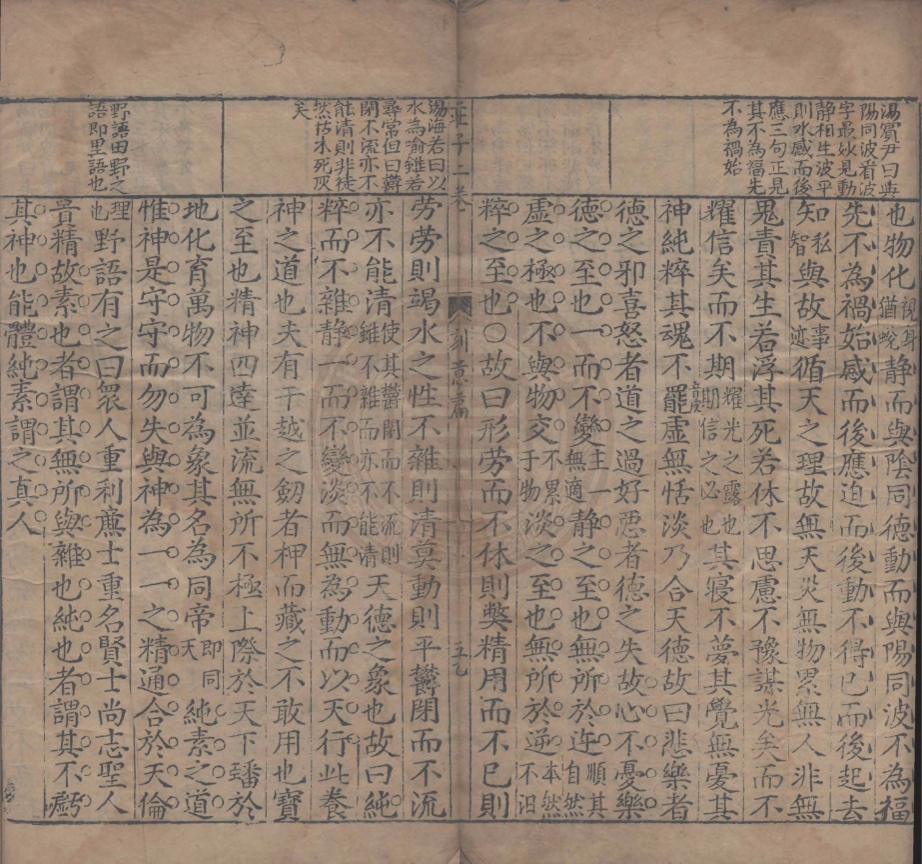 湯賓尹曰與
陽同波看波
字最妙見動
静相生波平
則水感而後
應三句正見
其不為福先
不為禍始
也物化猶蛇静而與陰同德動而與陽同波不為福
先不為禍始感而後應迫而後動不得已而後起去
知私智與故事迹循天之理故無天災無物累無人非無
鬼責其生若浮其死若休不思慮不豫謀光矣而不
耀信矣而不期耀光之露也期信之必也其寢不夢其覺無憂其
神純粹其魂不罷音疲虛無恬淡乃合天德故曰悲樂者
德之邪喜怒者道之過好惡者德之失故心不憂樂
德之至也一而不變主一無適静之至也無所於迕順其自然
虛之極也不與物交不累于物淡之至也無所於逆本然不汩
粹之至也○故曰形勞而不休則獘精用而不已則
莊子二卷
刻意篇
五九
湯海若曰以
水為喻雖若
尋常但曰欝
閉不流亦不
能清則非徒
然枯木死灰
矣
勞勞則竭水之性不雜則清莫動則平欝閉而不流
亦不能清使其欝閉而不流則雖不雜而亦不能清天德之象也故曰純
粹而不雜静一而不變淡而無為動而以天行此養
神之道也夫有干越之劒者柙而藏之不敢用也寶
之至也精神四達並流無所不極上際於天下蟠於
地化育萬物不可為象其名為同帝即同天純素之道
惟神是守守而勿失與神為一一之精通合於天倫
野語田野之
語即里語也
理也野語有之曰衆人重利廉士重名賢士尚志聖人
貴精故素也者謂其無所與雜也純也者謂其不虧
其神也能體純素謂之真人